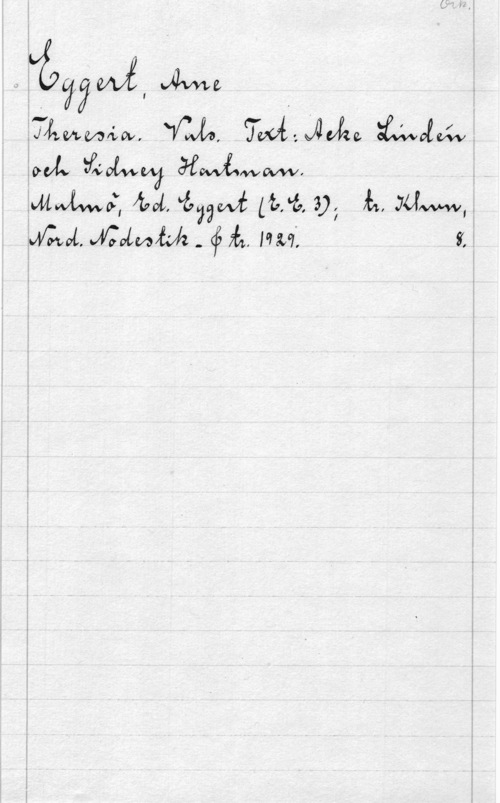 Ork.
Eggert, Arne
Theresia. Vals. Text: Acke Lindén
och Sidney Hartman.
Malmö, Ed. Eggert (E.E. 3); tr. Khvn,
Nord. Nodestik- & tr. 1929. 8.